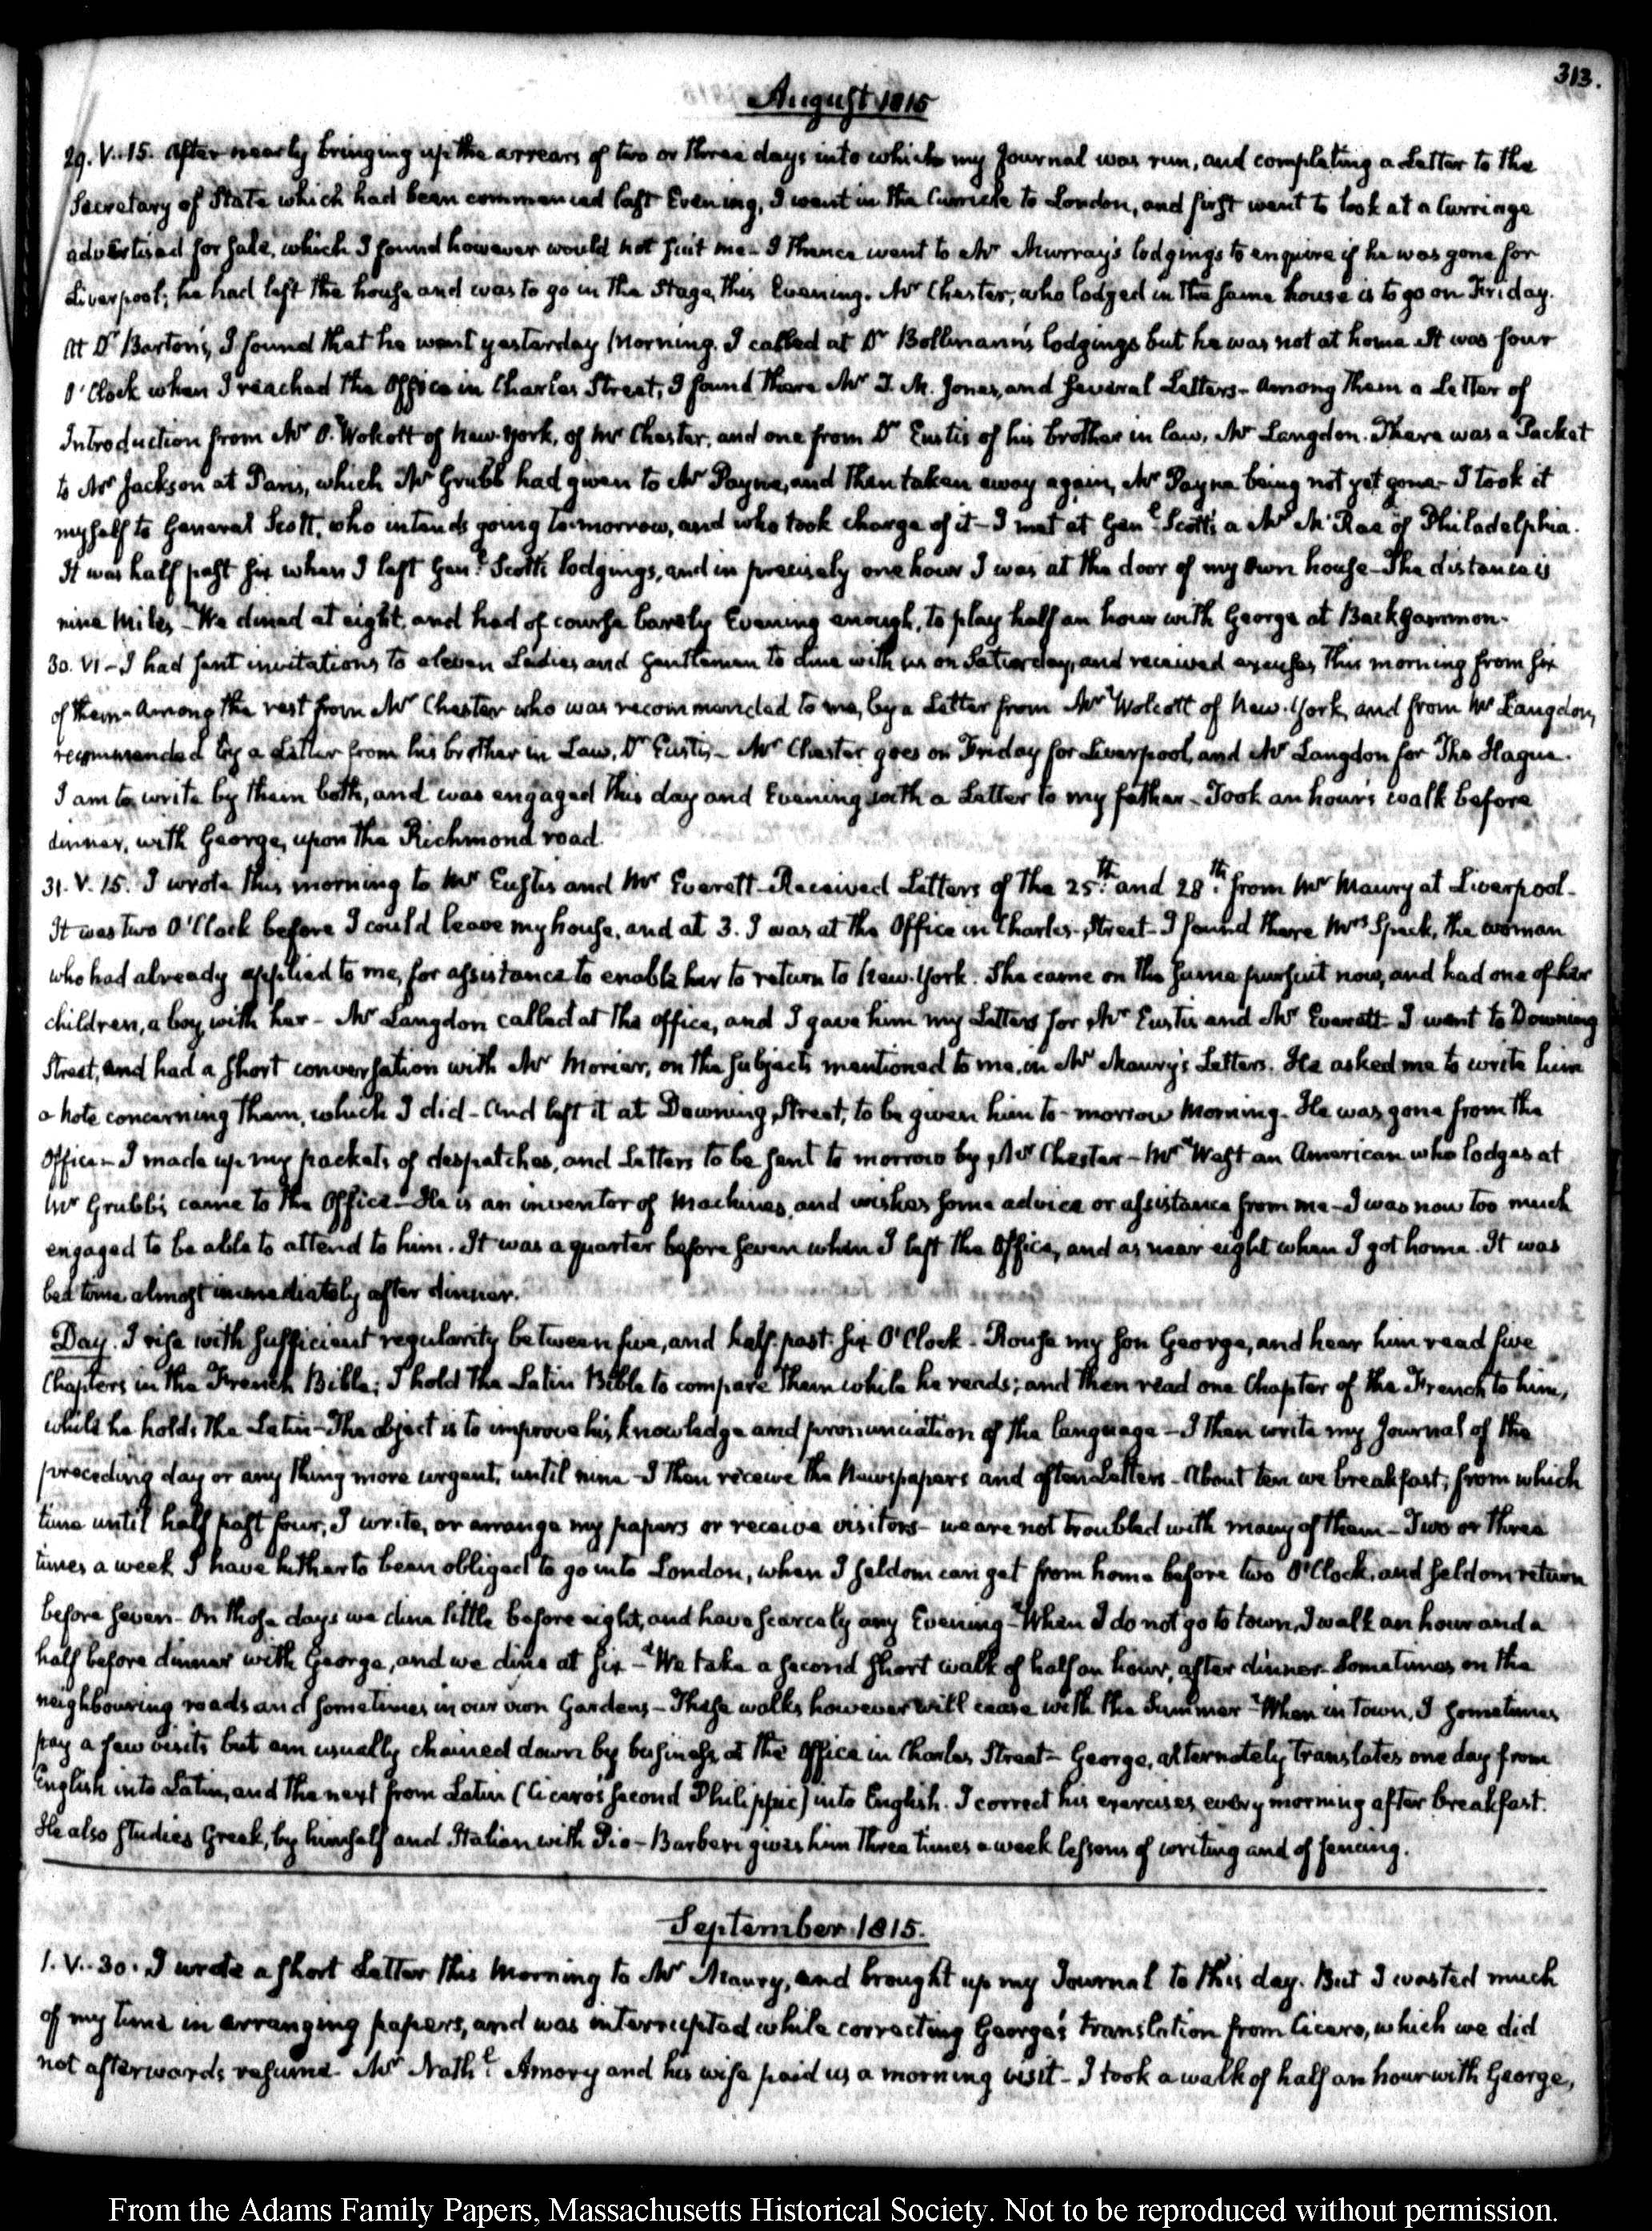 313.
August 1815
29. V..15. After nearly bringing up the arrears of two or three days into which my Journal was run, and completing a Letter to the
Secretary of State which had been commenced last Evening, I went in the Curricle to London, and first went to look at a Carriage
advertised for sale, which I found however would not suit me – I thence went to Mr Murray's lodgings to enquire if he was gone for
Liverpool; he had left the house and was to go in the Stage, this Evening. Mr Chester, who lodged in the same house is to go on Friday.
At Dr Barton's, I found that he went yesterday Morning. I called at Dr Bollmann's lodgings but he was not at home It was four
O'Clock when I reached the Office in Charles Street, I found there Mr T. M. Jones, and several Letters – Among them a Letter of
Introduction from Mr O. Wolcott of New-York, of Mr Chester, and one from Dr Eustis of his brother in law, Mr Langdon. There was a Packet
to Mr Jackson at Paris, which Mr Grubb had given to Mr Payne, and then taken away again, Mr Payne being not yet gone – I took it
myself to General Scott, who intends going to-morrow, and who took charge of it – I met at Genl Scott's a Mr McRae of Philadelphia.
It was half past six when I left Genl Scott's lodgings, and in precisely one hour I was at the door of my own house – The distance is
nine Miles – We dined at eight, and had of course barely Evening enough, to play half an hour with George at Backgammon.
30. VI – I had sent invitations to eleven Ladies and Gentlemen to dine with us on Saturday, and received excuses this morning from six
of them – Among the rest from Mr Chester who was recommended to me, by a Letter from Mr Wolcott of New-York, and from Mr Langdon,
recommended by a Letter from his brother in Law, Dr Eustis – Mr Chester goes on Friday for Liverpool, and Mr Langdon for The Hague.
I am to write by them both, and was engaged this day and Evening with a Letter to my father – Took an hour's walk before
dinner, with George, upon the Richmond road.
31. V. 15. I wrote this morning to Mr Eustis and Mr Everett – Received Letters of the 25th and 28th from Mr Maury at Liverpool –
It was two O'Clock before I could leave my house, and at 3. I was at the Office in Charles-Street – I found there Mrs Speck, the woman
who had already applied to me, for assistance to enable her to return to New-York. She came on the same pursuit now, and had one of her
children, a boy, with her – Mr Langdon called at the office, and I gave him my Letters for Mr Eustis and Mr Everett – I went to Downing
Street, and had a short conversation with Mr Morier, on the subjects mentioned to me, in Mr Maury's Letters. He asked me to write him
a note concerning them, which I did – And left it at Downing Street, to be given him to-morrow Morning. He was gone from the
Office – I made up my packets of despatches, and Letters to be sent to morrow by Mr Chester – Mr West an American who lodges at
Mr Grubb's came to the Office – He is an inventor of Machines, and wishes some advice or assistance from me – I was now too much
engaged to be able to attend to him. It was a quarter before seven when I left the Office, and as near eight when I got home. It was
bed time almost immediately after dinner.
Day. I rise with sufficient regularity between five, and half past six O'Clock – Rouse my Son George, and hear him read five
Chapters in the French Bible; I hold the Latin Bible to compare them while he reads; and then read one Chapter of the French to him,
while he holds the Latin – The object is to improve his knowledge and pronunciation of the language – I then write my Journal of the
preceding day or any thing more urgent, until nine – I then receive the Newspapers and often Letters – About ten we breakfast; from which
time until half past four, I write, or arrange my papers or receive visitors – we are not troubled with many of them – Two or three
times a week I have hitherto been obliged to go into London, when I seldom can get from home before two O'Clock, and seldom return
before seven – On those days we dine little before eight, and have scarcely any Evening – When I do not go to town, I walk an hour and a
half before dinner with George, and we dine at six – We take a second short walk of half an hour, after dinner – Sometimes on the
neighbouring roads and sometimes in our own Gardens – These walks however will cease with the Summer – When in town, I sometimes
pay a few visits but am usually chained down by business, at the Office in Charles Street – George, alternately translates one day from
English into Latin, and the next from Latin (Cicero's second Philippic) into English. I correct his exercises, every morning after breakfast.
He also studies Greek, by himself and Italian with Pio – Barberi gives him three times a week lessons of writing and of fencing.
September 1815.
1. V..30. I wrote a short Letter this Morning to Mr Maury, and brought up my Journal to this day. But I wasted much
of my time in arranging papers, and was interrupted while correcting George's translation from Cicero, which we did
not afterwards resume. Mr Nathl Amory and his wife paid us a morning visit – I took a walk of half an hour with George,
From the Adams Family Papers, Massachusetts Historical Society. Not to be reproduced without permission.